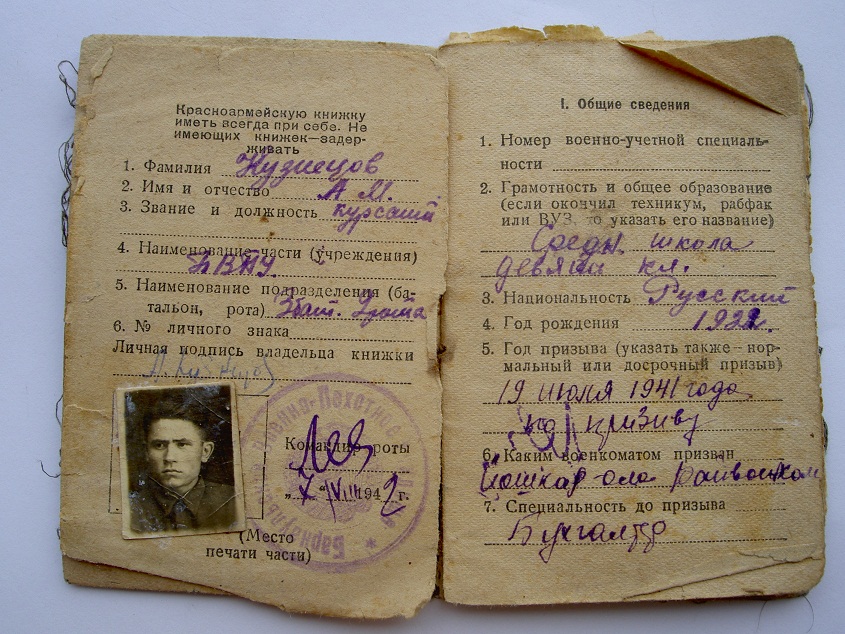 Красноармейскую книжку
иметь всегда при себе. Не
имеющих книжек—задер-
живать
1. Фамилия Кузнецов
2. Имя и отчество А М.
3. Звание и должность курсант
4. Наименование части (учреждения)
БВПУ.
5. Наименование подразделения (ба-
тальон, рота) 3бат. 2рота
6. № личного знака
Личная подпись владельца книжки
Командир роты
„7“ VIII 1942 г.
(Место
печати части)
Барнаульское Военно-Пехотное
I. Общие сведения
1. Номер военно-учетной специаль-
ности
2. Грамотность и общее образование
(если окончил техникум, рабфак
или ВУЗ, то указать его название)
Средн. школа
девять кл.
3. Национальность Русский
4. Год рождения
5. Год призыва (указать также—нор-
мальный или досрочный призыв)
19 июля 1941 года
по призиву
6. Каким военкоматом призван
Йошкар ола райвоенком
7. Специальность до призыва
Бухгалтер